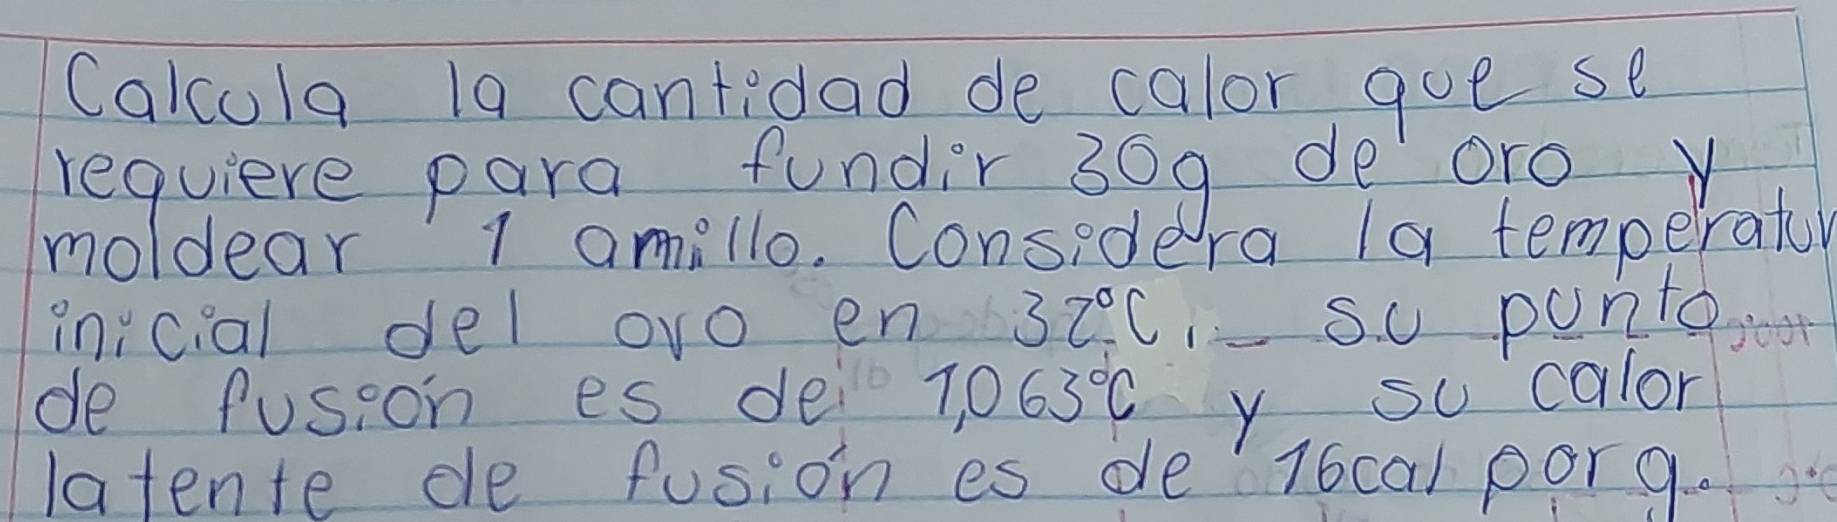 Calcula la cantidad de calor que se
requiere para fundir 30g de oro y
moldear 1 amillo. Considera la temperatur
inicial del oro en 32°C, su punto
de fusión es de 1,063°C y su calor
latente de fusión es de 16cal por g.